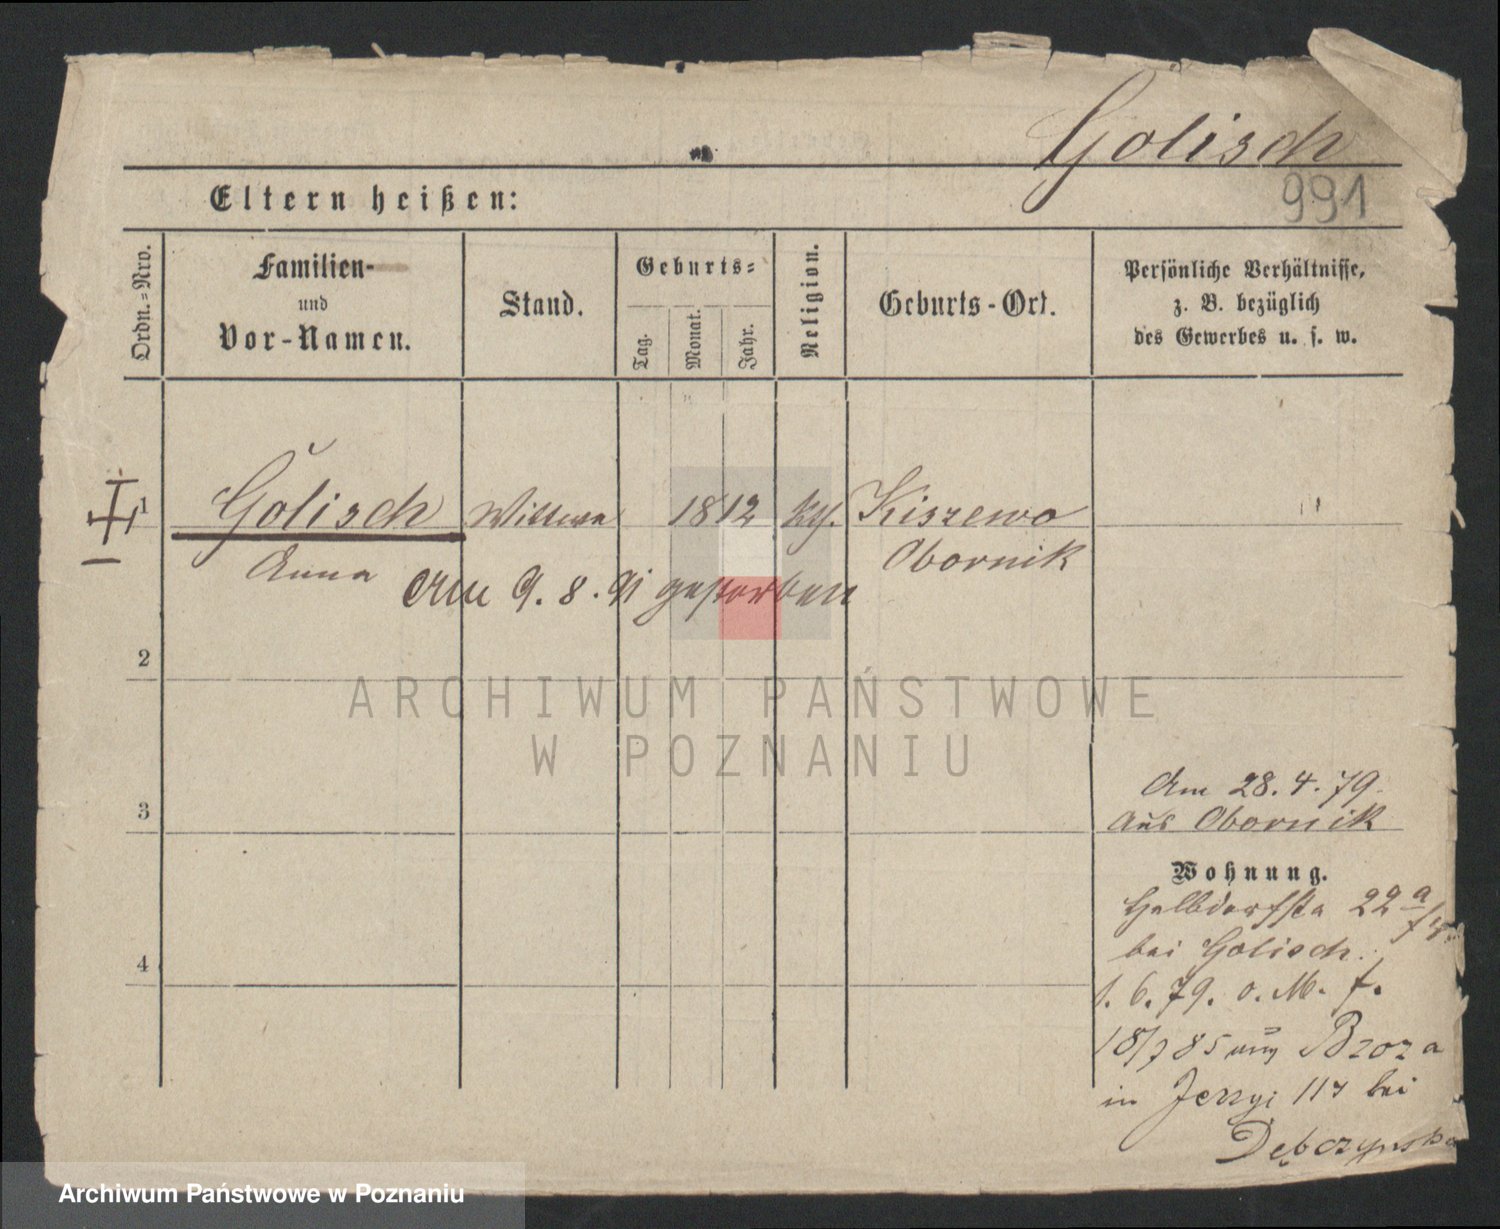 Golisch
991
Eltern heißen:
Ordn.-Nro.
Familien-
und
Vor-Namen.
Stand.
Geburts-
Tag.
Monat.
Jahr.
Religion.
Geburts-Ort.
Persönliche Verhältnisse,
z. B. bezüglich
des Gewerbes u. s. w.
1
Golisch
Wittwe
1812
Kiszewo
Anna
Obornik
Am 9. 8. 91 gestorben
2
ARCHIWUM PAŃSTWOWE
W POZNANIU
Am 28. 4. 79.
aus Obornik
3
Wohnung.
Halbdorfstr 22 a
bei Golisch.
4
1. 6. 79. o. M. f.
18/7 85 Broza
in Jerzyi 117 bei
Dębczynska
Archiwum Państwowe w Poznaniu